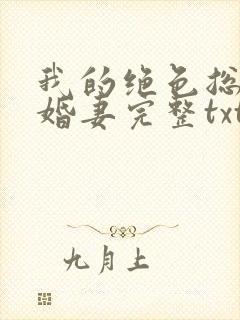 我的绝色总
婚妻完整txt
九月上